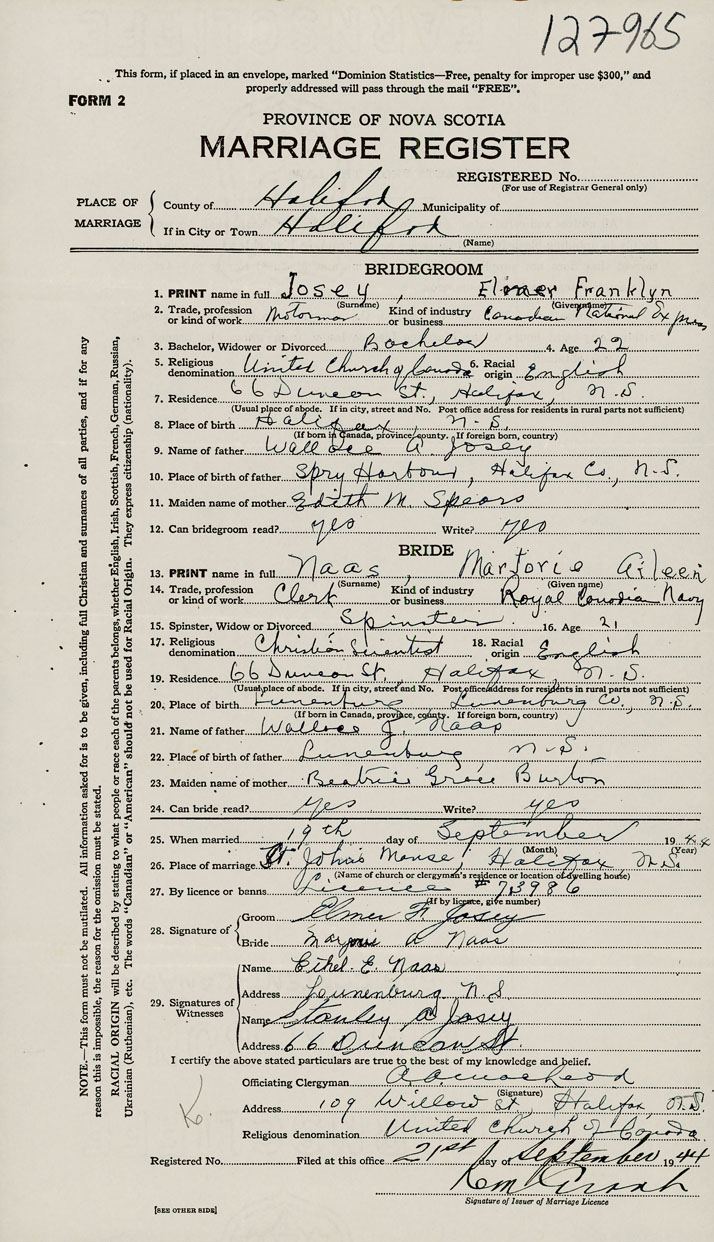 127965
This form, if placed in an envelope, marked "Dominion Statistics—Free, penalty for improper use $300," and
properly addressed will pass through the mail "FREE".
FORM 2
PROVINCE OF NOVA SCOTIA
MARRIAGE REGISTER
REGISTERED No.
(For use of Registrar General only)
PLACE OF MARRIAGE
County of Halifax Municipality of
If in City or Town Halifax
(Name)
BRIDEGROOM
1. PRINT name in full Josey, Elmer Franklyn
(Surname) (Given name)
2. Trade, profession or kind of work Motorman Kind of industry or business Canadian National Express
3. Bachelor, Widower or Divorced Bachelor 4. Age 22
5. Religious denomination United Church of Canada 6. Racial origin English
7. Residence 66 Duncan St., Halifax, N.S.
(Usual place of abode. If in city, street and No. Post office address for residents in rural parts not sufficient)
8. Place of birth Halifax, N.S.
(If born in Canada, province, county. If foreign born, country)
9. Name of father Wallace A. Josey
10. Place of birth of father Spry Harbour, Halifax Co., N.S.
11. Maiden name of mother Edith M. Spears
12. Can bridegroom read? yes Write? yes
BRIDE
13. PRINT name in full Naas, Marjorie Aileen
(Surname) (Given name)
14. Trade, profession or kind of work Clerk Kind of industry or business Royal Canadian Navy
15. Spinster, Widow or Divorced Spinster 16. Age 21
17. Religious denomination Christian Scientist 18. Racial origin English
19. Residence 66 Duncan St., Halifax, N.S.
(Usual place of abode. If in city, street and No. Post office address for residents in rural parts not sufficient)
20. Place of birth Lunenburg Lunenburg Co., N.S.
(If born in Canada, province, county. If foreign born, country)
21. Name of father Wallace J. Naas
22. Place of birth of father Lunenburg N.S.
23. Maiden name of mother Beatrice Grace Burton
24. Can bride read? yes Write? yes
25. When married 19th day of September 1944
(Month) (Year)
26. Place of marriage St. John's Manse, Halifax, N.S.
(Name of church or clergyman's residence or location of dwelling house)
27. By licence or banns Licence #73986
(If by licence, give number)
28. Signature of
Groom Elmer F. Josey
Bride Marjorie A Naas
29. Signatures of Witnesses
Name Ethel E. Naas
Address Lunenburg N.S
Name Stanley A Josey
Address 66 Duncan St.
I certify the above stated particulars are true to the best of my knowledge and belief.
Officiating Clergyman
(Signature)
Address 109 Willow St, Halifax, N.S.
Religious denomination United Church of Canada
Registered No. Filed at this office 21st day of September 1944
Signature of Issuer of Marriage Licence
[SEE OTHER SIDE]
K.
NOTE.—This form must not be mutilated. All information asked for is to be given, including full Christian and surnames of all parties, and if for any
reason this is impossible, the reason for the omission must be stated.
RACIAL ORIGIN will be described by stating to what people or race each of the parents belongs, whether English, Irish, Scottish, French, German, Russian,
Ukrainian (Ruthenian), etc. The words "Canadian" or "American" should not be used for Racial Origin. They express citizenship (nationality).